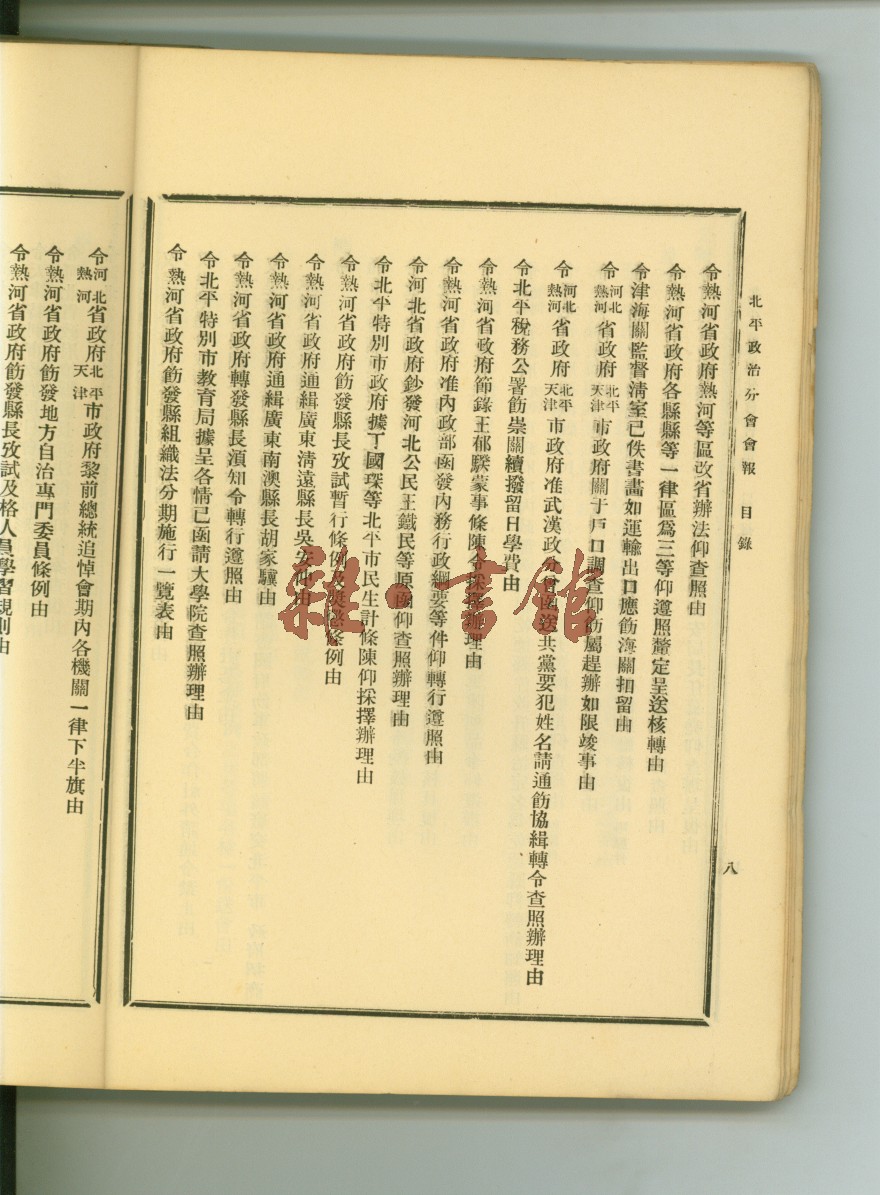 北平政治分會會報　目錄
八
令熱河省政府熱河等區改省辦法仰查照由
令熱河省政府各縣縣等一律區爲三等仰遵照釐定呈送核轉由
令津海關監督淸室已佚書畫如運輸出口應飭海關扣留由
令河北熱河省政府北平天津市政府關于戶口調查仰飭屬趕辦如限竣事由
令河北熱河省政府北平天津市政府准武漢政分會函送共黨要犯姓名請通飭協緝轉令查照辦理由
令北平稅務公署飭崇關續撥留日學費由
令熱河省政府節錄王郁騤蒙事條陳令採擇辦理由
令熱河省政府准內政部函發內務行政綱要等件仰轉行遵照由
令河北省政府鈔發河北公民王鐵民等原函仰查照辦理由
令北平特別市政府據丁國琛等北平市民生計條陳仰採擇辦理由
令熱河省政府飭發縣長攷試暫行條例及奬懲條例由
令熱河省政府通緝廣東淸遠縣長吳安仲由
令熱河省政府通緝廣東南澳縣長胡家驥由
令熱河省政府轉發縣長須知令轉行遵照由
令北平特別市教育局據呈各情已函請大學院查照辦理由
令熱河省政府飭發縣組織法分期施行一覽表由
令河北熱河省政府北平天津市政府黎前總統追悼會期內各機關一律下半旗由
令熱河省政府飭發地方自治專門委員條例由
令熱河省政府飭發縣長攷試及格人員學習規則由
雜·書館